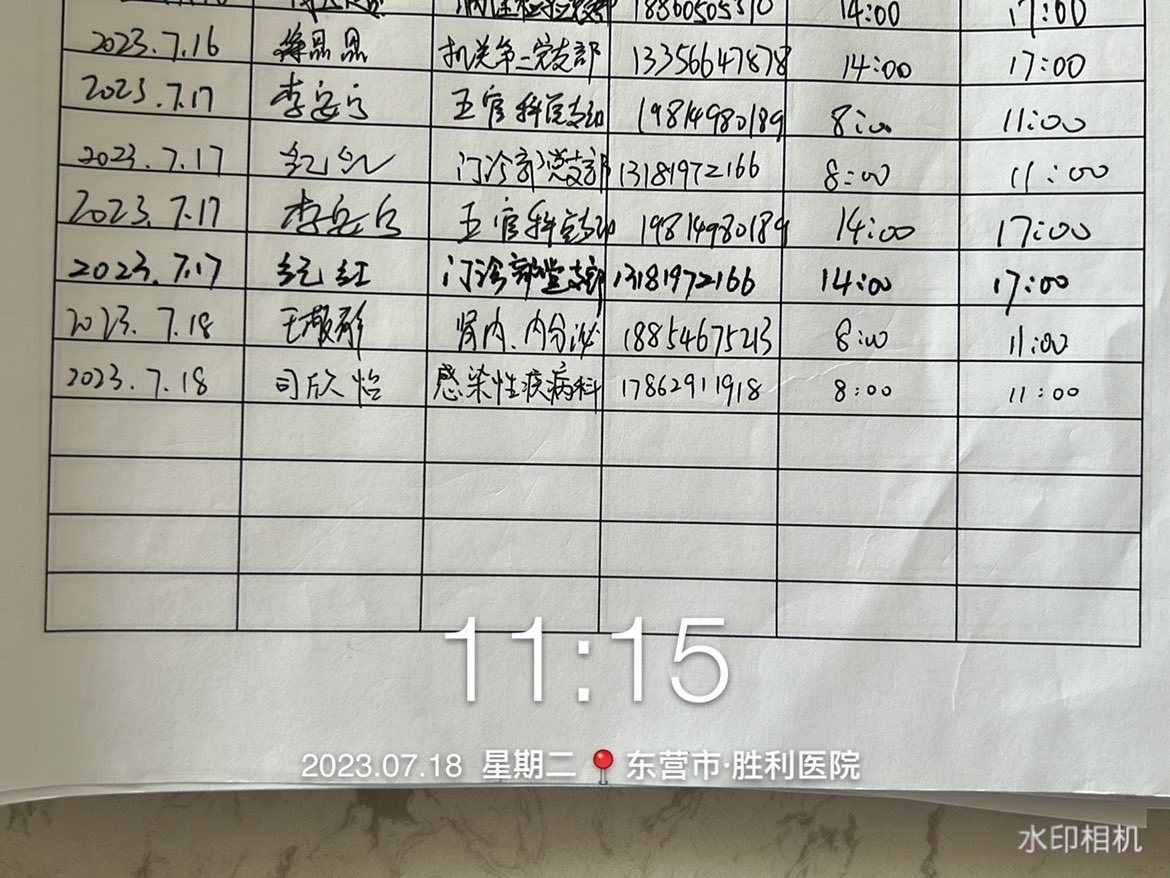 18860505310 14:00 17:00
2023.7.16 晶晶 机关第二党支部 13356647878 14:00 17:00
2023.7.17 李安宁 五官科党支部 19814980189 8:00 11:00
2023.7.17 纪红 门诊部党支部 13181972166 8:00 11:00
2023.7.17 李安宁 五官科党支部 19814980189 14:00 17:00
2023.7.17 纪红 门诊部党支部 13181972166 14:00 17:00
2023.7.18 王 肾内、内分泌 18854675213 8:00 11:00
2023.7.18 司欣怡 感染性疾病科 17862911918 8:00 11:00
11:15
2023.07.18 星期二 东营市·胜利医院
水印相机